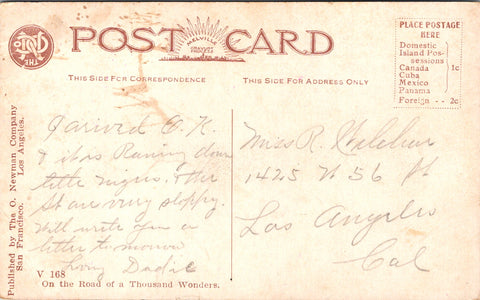 POST CARD
MELVILLE
THIS SIDE FOR CORRESPONDENCE
THIS SIDE FOR ADDRESS ONLY
PLACE POSTAGE
HERE
Domestic
Island Pos-
sessions
Canada
Cuba
Mexico
Panama
1c
Foreign -- 2c
Published by The O. Newman Company
Los Angeles.
San Francisco.
I arived O.K.
it is Raining down
& the
St are very sloppy.
Will write you a
letter to morrow
Dadie
Miss R.
1425 W 56 St
Los Angeles
Cal
V 168
On the Road of a Thousand Wonders.